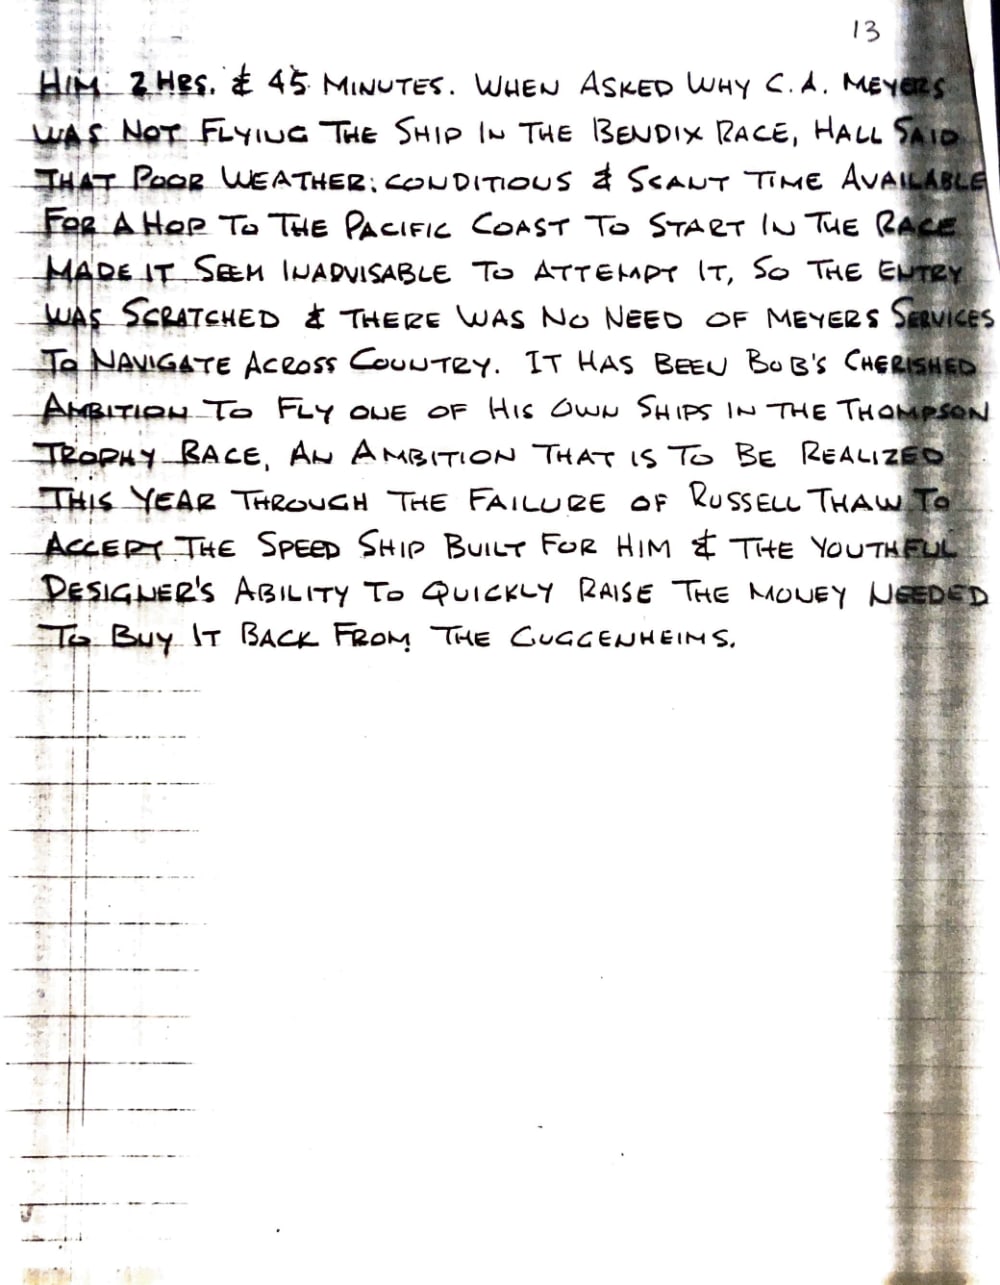 13
HIM 2 HRS. & 45 MINUTES. WHEN ASKED WHY C.A. MEYERS
WAS NOT FLYING THE SHIP IN THE BENDIX RACE, HALL SAID
THAT POOR WEATHER CONDITIONS & SCANT TIME AVAILABLE
FOR A HOP TO THE PACIFIC COAST TO START IN THE RACE
MADE IT SEEM INADVISABLE TO ATTEMPT IT, SO THE ENTRY
WAS SCRATCHED & THERE WAS NO NEED OF MEYERS SERVICES
TO NAVIGATE ACROSS COUNTRY. IT HAS BEEN BOB'S CHERISHED
AMBITION TO FLY ONE OF HIS OWN SHIPS IN THE THOMPSON
TROPHY RACE, AN AMBITION THAT IS TO BE REALIZED
THIS YEAR THROUGH THE FAILURE OF RUSSELL THAW TO
ACCEPT THE SPEED SHIP BUILT FOR HIM & THE YOUTHFUL
DESIGNER'S ABILITY TO QUICKLY RAISE THE MONEY NEEDED
TO BUY IT BACK FROM THE GUGGENHEIMS.